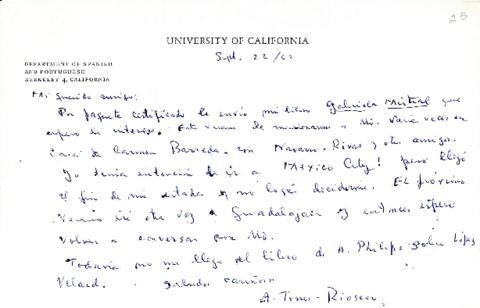 25
UNIVERSITY OF CALIFORNIA
Sept. 22/62
DEPARTMENT OF SPANISH
AND PORTUGUESE
BERKELEY 4, CALIFORNIA
Mi querido amigo:
Por paquete certificado le envío mi libro Gabriela Mistral que
espero le interese. Este verano le mencionamos a Ud. varias veces en
casa de Carmen Barreda, con Navarro, Rivas y otros amigos.
Yo tenía intención de ir a Mexico City! pero llegó
el fin de mi estada y no logré decidirme. El próximo
verano iré otra vez a Guadalajara y entonces espero
volver a conversar con Ud.
Todavía no me llega el libro de A. Phillips sobre López
Velarde. Saludos cariñosos
A. Torres-Rioseco